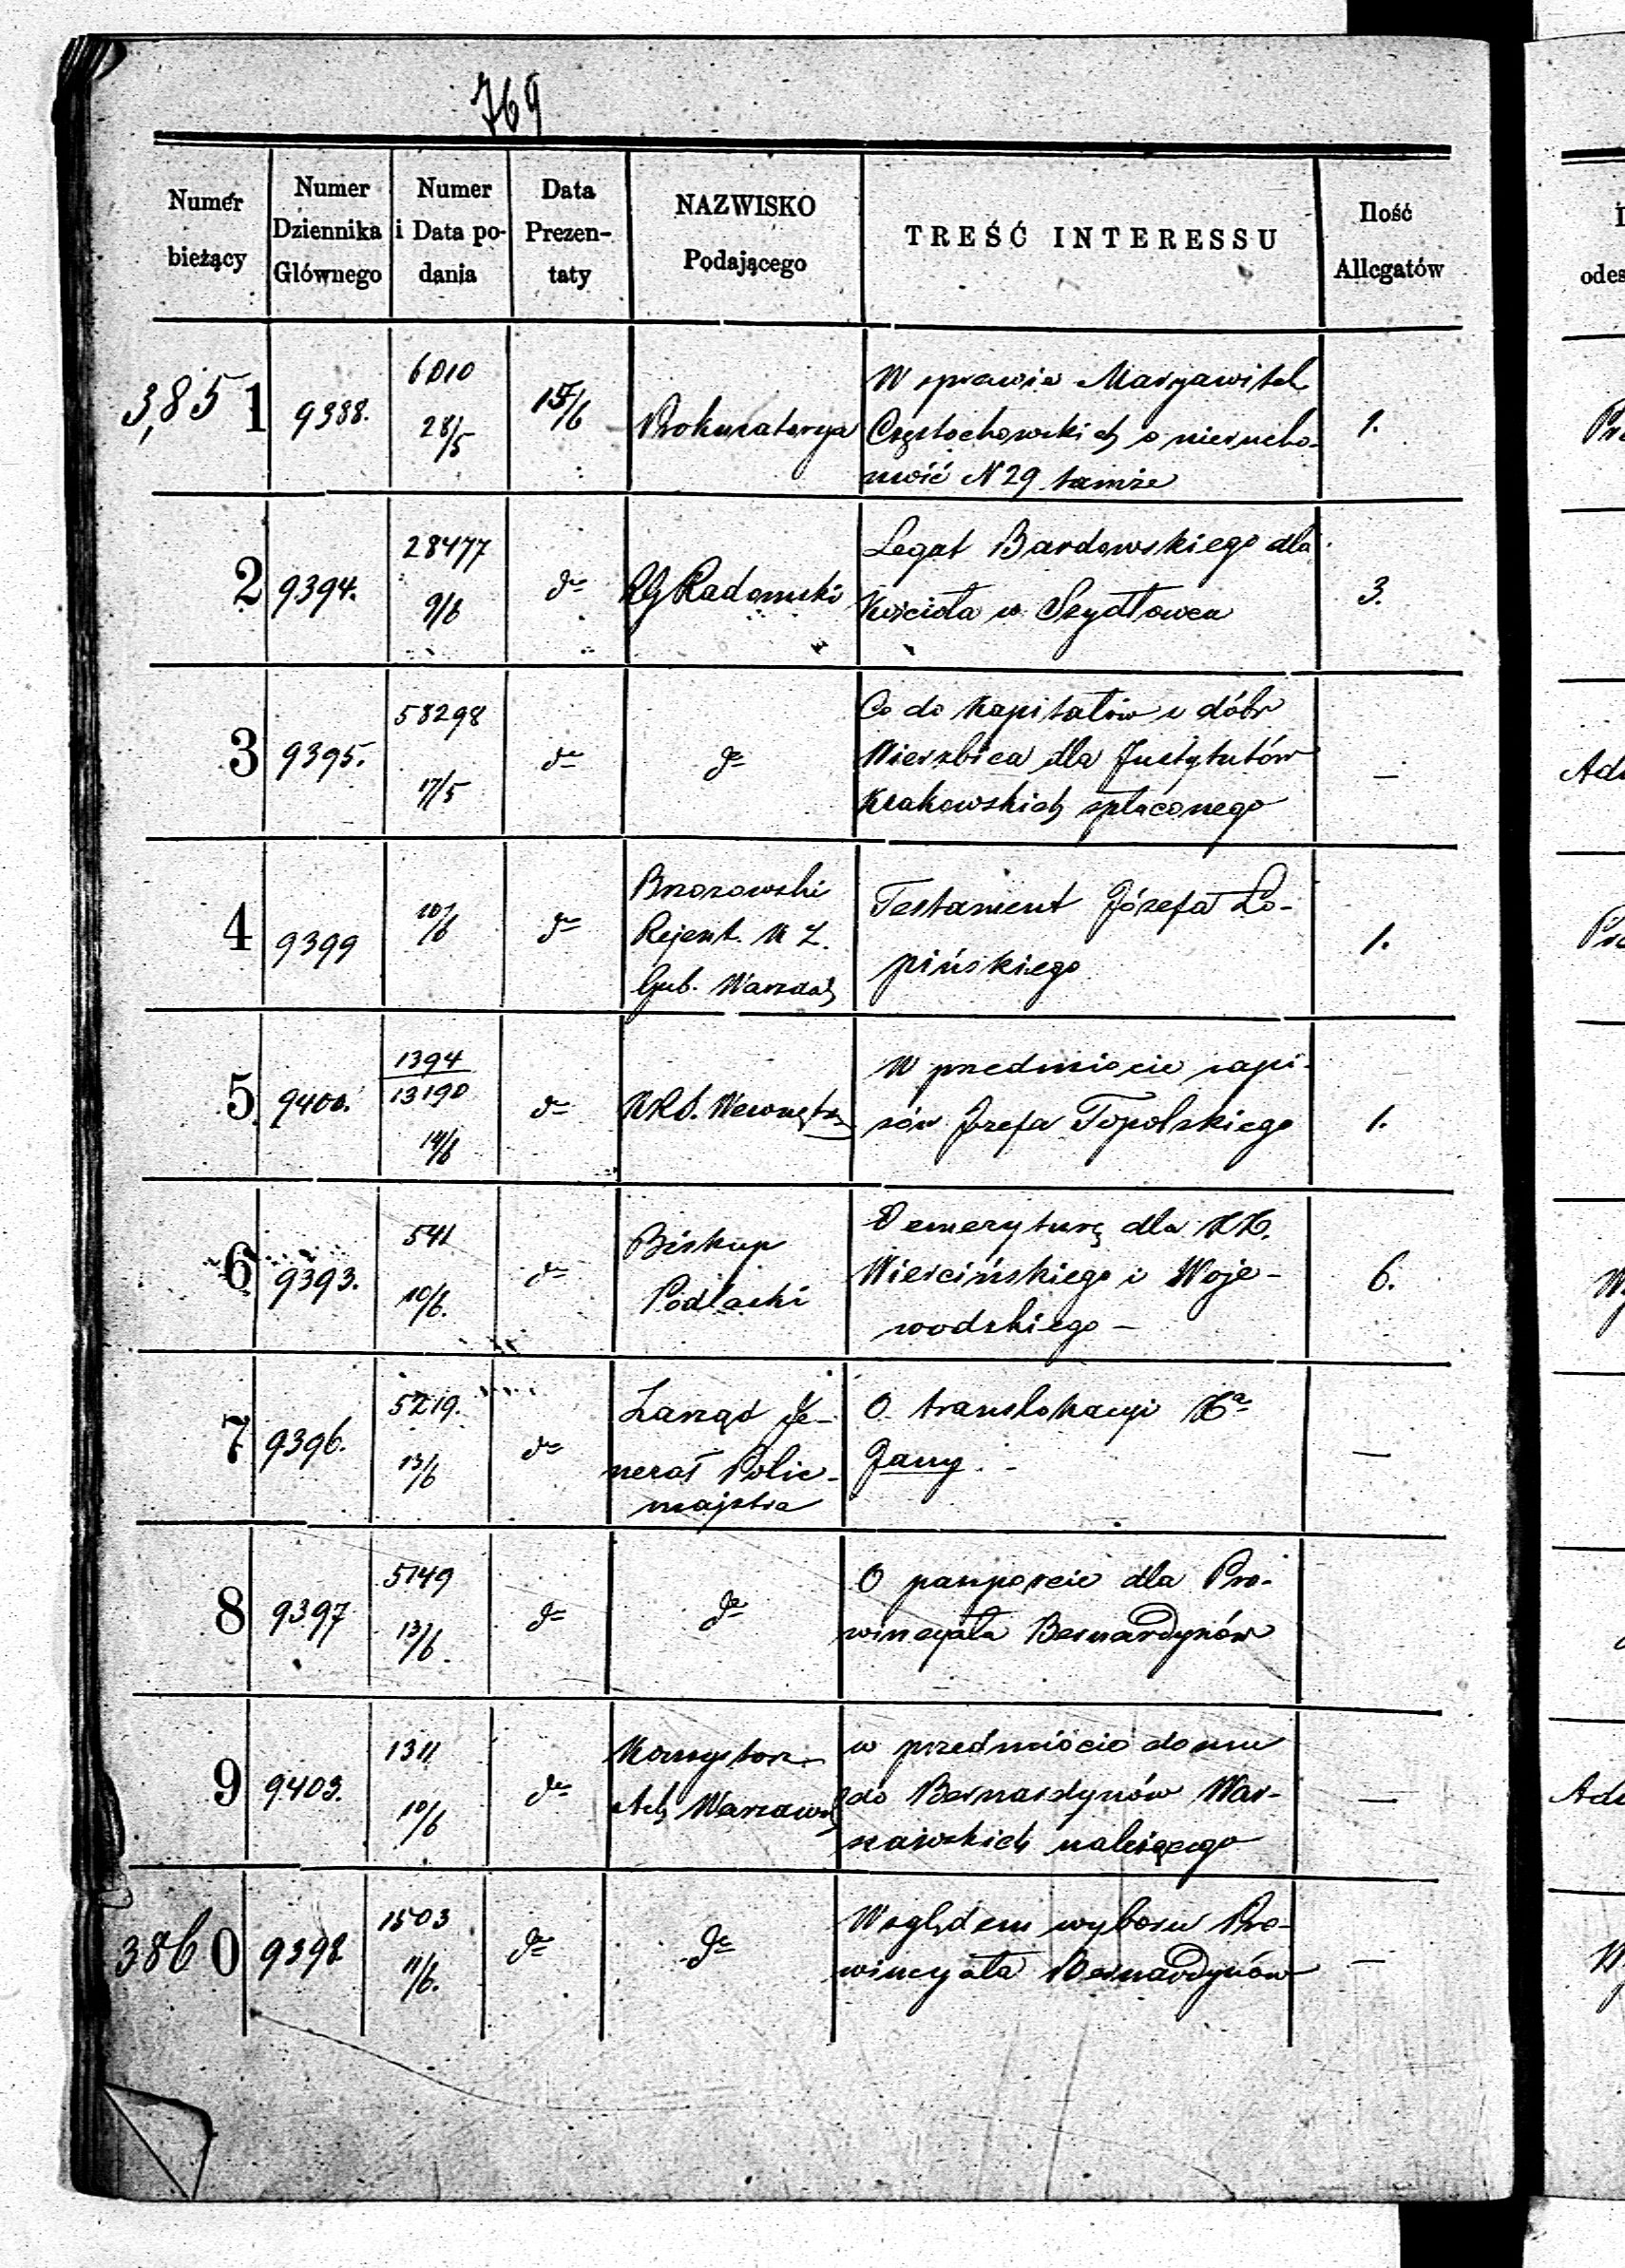 769
Numer bieżący | Numer Dziennika Głównego | Numer i Data podania | Data Prezentaty | NAZWISKO Podającego | TREŚĆ INTERESSU | Ilość Allegatów
3,851 | 9388. | 6010 28/5 | 15/6 | Prokuratorya | W sprawie Maryawitek
Częstochowskich o nierucho-
mość N 29 tamże | 1.
2 | 9394. | 28477 9/6 | do | RG Radomski | Legat Bardowskiego dla
Kościoła w Szydłowcu | 3.
3 | 9395. | 58298 17/5 | do | do | Co do Kapitałów z dóbr
Wierzbica dla Instytutów
Krakowskich spłaconego | —
4 | 9399 | 10/6 | do | Brzozowski
Rejent K Z.
Gub. Warszaw | Testament Józefa Ło-
pińskiego | 1.
5 | 9400. | 1394
13190 14/6 | do | KRS. Wewnętrz | W przedmiocie zapi-
sów Józefa Topolskiego | 1.
6 | 9393. | 541 10/6. | do | Biskup
Podlaski | O emeryturę dla XX.
Wiercińskiego i Woje-
wodzkiego — | 6.
7 | 9396. | 5219. 13/6 | do | Zarząd Je-
nerał Polic-
majstra | O translokacyi Xa
Jany. | —
8 | 9397 | 5149 13/6. | do | do | O paszporcie dla Pro-
wincyała Bernardynów
9 | 9403. | 1311 10/6 | do | Konsystorz
Arch Warszaws | w przedmiocie domu
do Bernardynów War-
szawskich należącego | —
3860 | 9398 | 1503 11/6. | do | do | Względem wyboru Pro-
wincyała Bernardynów | —